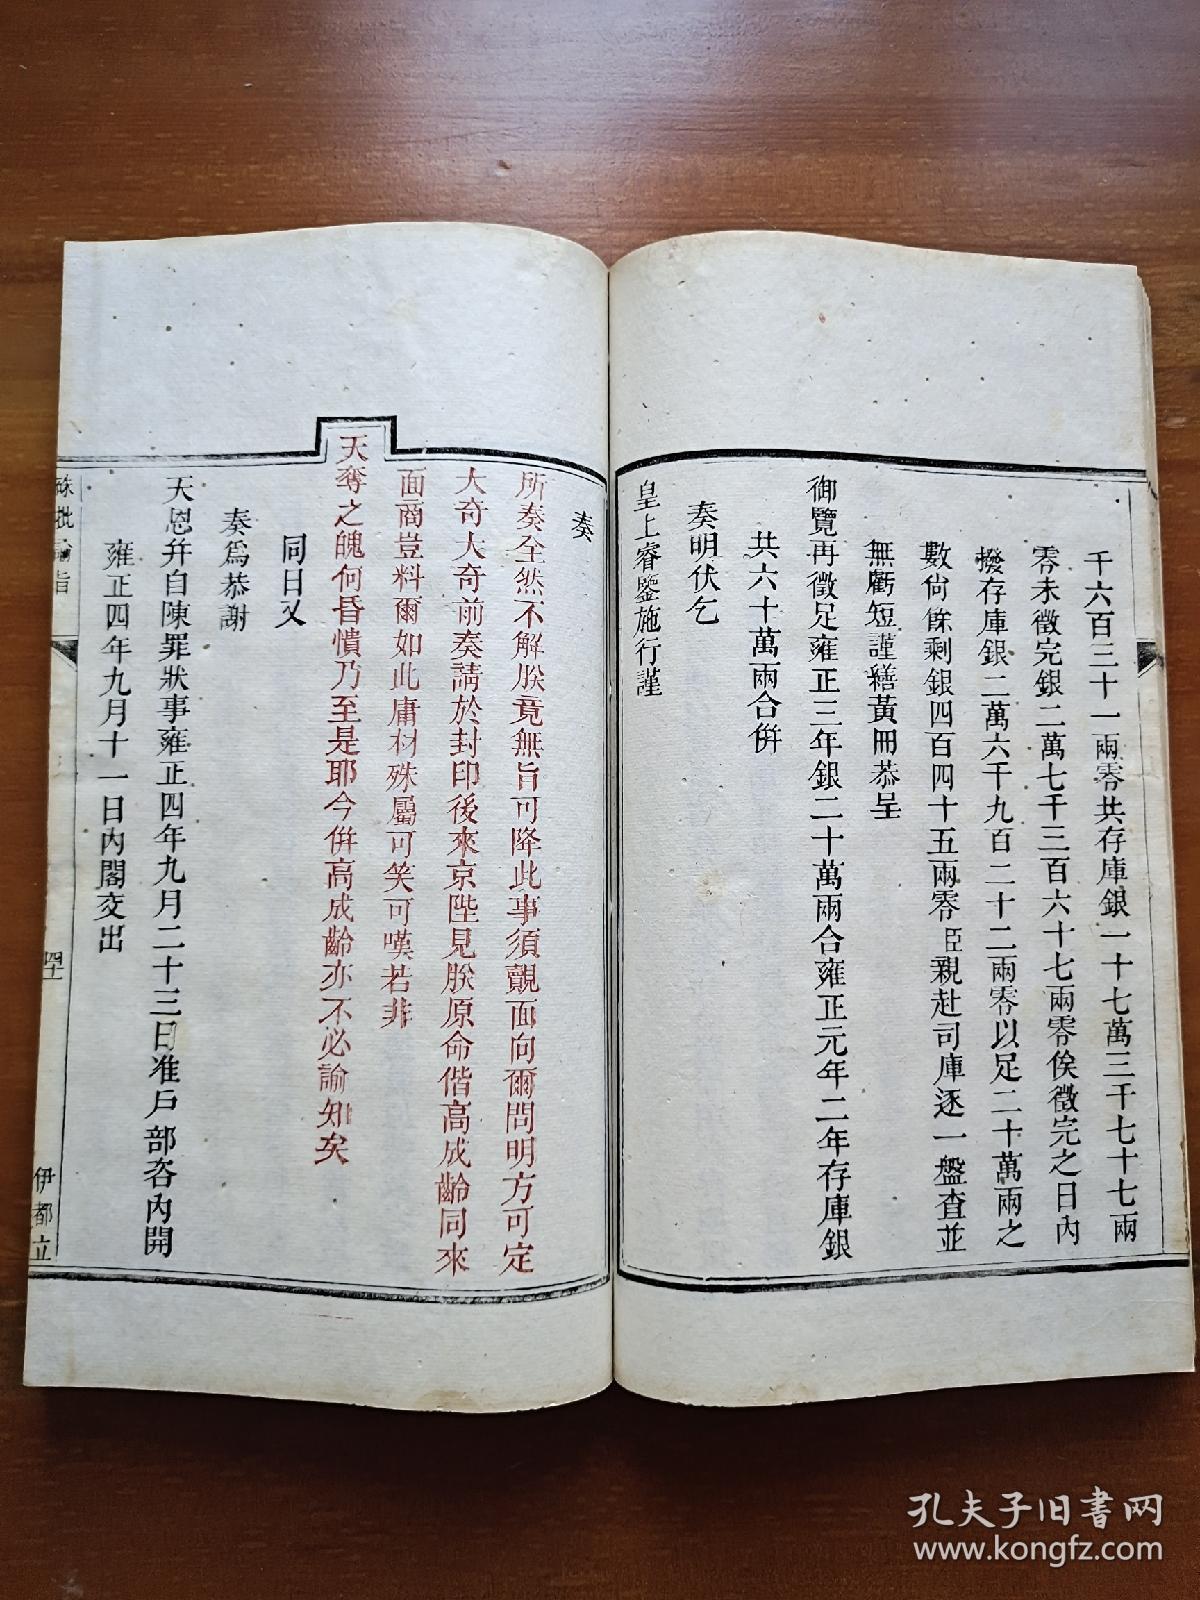 千六百三十一兩零共存庫銀一十七萬三千七十七兩
零未徵完銀二萬七千三百六十七兩零俟徵完之日內
撥存庫銀二萬六千九百二十二兩零以足二十萬兩之
數尙餘剩銀四百四十五兩零臣親赴司庫逐一盤查並
無虧短謹繕黃冊恭呈
御覽再徵足雍正三年銀二十萬兩合雍正元年二年存庫銀
共六十萬兩合併
奏明伏乞
皇上睿鑒施行謹
奏
所奏全然不解朕竟無旨可降此事須覿面向爾問明方可定
大奇大奇前奏請於封印後來京陛見朕原命偕高成齡同來
面商豈料爾如此庸材殊屬可笑可嘆若非
天奪之魄何昏憒乃至是耶今併高成齡亦不必諭知矣
同日又
奏爲恭謝
天恩幷自陳罪狀事雍正四年九月二十三日准戶部咨內開
雍正四年九月十一日內閣交出
硃批諭旨
伊都立
孔夫子旧书网
www.kongfz.com